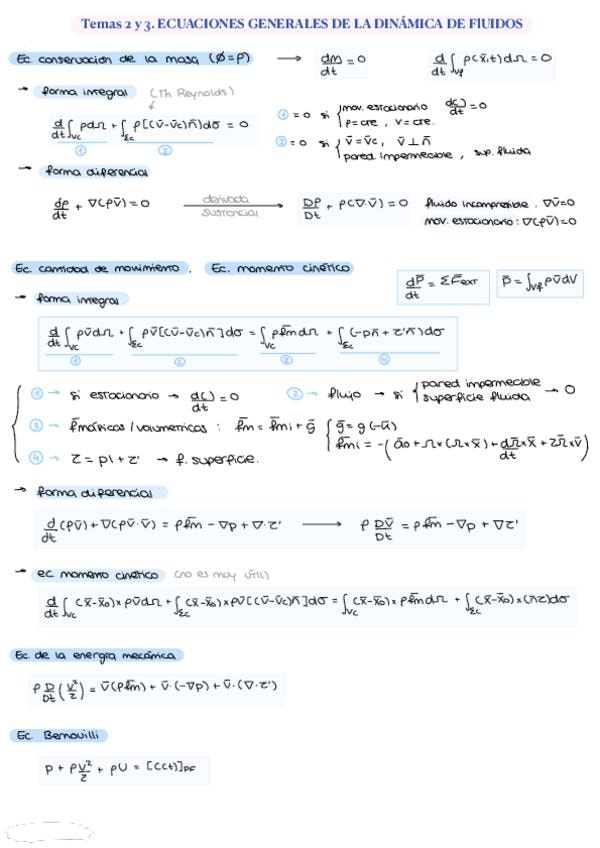 Temas 2 y 3. ECUACIONES GENERALES DE LA DINÁMICA DE FlUIDOS
Ec. conservación de la masa (Ø=ρ) → dm/dt = 0 d/dt ∫_Vf ρ(x̄,t)dΩ = 0
→ forma integral (Th. Reynolds)
d/dt ∫_Vc ρdΩ + ∫_Σc ρ[(v̄-v̄c)n̄]dσ = 0
① ②
① = 0 si { mov. estacionario d()/dt = 0
ρ = cte, V = cte.
② = 0 si { v̄ = v̄c, v̄ ⊥ n̄
pared impermeable, sup. fluida
→ forma diferencial
dρ/dt + ∇(ρv̄) = 0 derivada sustancial → Dρ/Dt + ρ(∇·v̄) = 0
fluido incompresible. ∇v̄=0
mov. estacionario: ∇(ρv̄)=0
Ec. cantidad de movimiento, Ec. momento cinético
dP̄/dt = ΣF̄ext P̄ = ∫_Vf ρv̄dV
→ forma integral
d/dt ∫_Vc ρv̄dΩ + ∫_Σc ρv̄[(v̄-v̄c)n̄]dσ = ∫_Vc ρf̄mdΩ + ∫_Σc (-pn̄ + τ'n̄)dσ
① ② ③ ④
① → si estacionario → d()/dt = 0 ② → flujo → si { pared impermeable
superficie fluida → 0
③ → f̄másicas/volumetricas : f̄m = f̄mi + ḡ { ḡ = g(-ū)
f̄mi = -(ā0 + Ω×(Ω×x̄) + dΩ̄/dt×x̄ + 2Ω̄×v̄)
④ → τ = pI + τ' → f. superficie.
→ forma diferencial
d/dt(ρv̄) + ∇(ρv̄·v̄) = ρf̄m - ∇p + ∇·τ' → ρ Dv̄/Dt = ρf̄m - ∇p + ∇τ'
→ ec momento cinético (no es muy útil)
d/dt ∫_Vc (x̄-x̄0)×ρv̄dΩ + ∫_Σc (x̄-x̄0)×ρv̄[(v̄-v̄c)n̄]dσ = ∫_Vc (x̄-x̄0)×ρf̄mdΩ + ∫_Σc (x̄-x̄0)×(n̄τ)dσ
Ec. de la energía mecánica
ρ D/Dt (v²/2) = v̄(ρf̄m) + v̄·(-∇p) + v̄·(∇·τ')
Ec. Bernouilli
p + ρv²/2 + ρU = [C(t)]PF